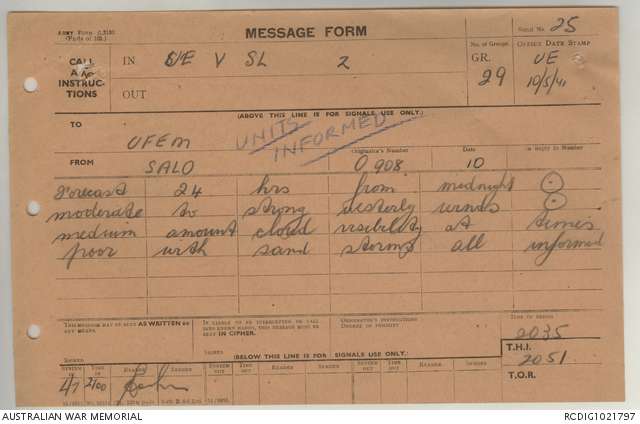 ARMY Form C.2130
(Pads of 100.)
MESSAGE FORM
Serial No. 25
CALL
AND
INSTRUC-
TIONS
IN UE V SL 2
OUT
No. of Groups
GR.
29
OFFICE DATE STAMP
UE
10/5/41
(ABOVE THIS LINE IS FOR SIGNALS USE ONLY.)
TO
UFEM
UNITS
INFORMED
FROM
Originator's Number
Date
In reply to Number
SALO
O 908
10
Forecast 24 hrs from midnight
moderate to strong westerly winds
medium amount cloud visibility at times
poor with sand storms all informed
THIS MESSAGE MAY BE SENT AS WRITTEN BY
ANY MEANS.
IF LIABLE TO BE INTERCEPTED OR FALL
INTO ENEMY HANDS, THIS MESSAGE MUST BE
SENT IN CIPHER.
ORIGINATOR'S INSTRUCTIONS
DEGREE OF PRIORITY
TIME OF ORIGIN
2035
SIGNED
SIGNED
(BELOW THIS LINE IS FOR SIGNALS USE ONLY.)
T.H.I.
2051
T.O.R.
SYSTEM
TIME IN
READER
SENDER
SYSTEM OUT
TIME OUT
READER
SENDER
SYSTEM OUT
TIME OUT
READER
SENDER
2100
AUSTRALIAN WAR MEMORIAL
RCDIG1021797